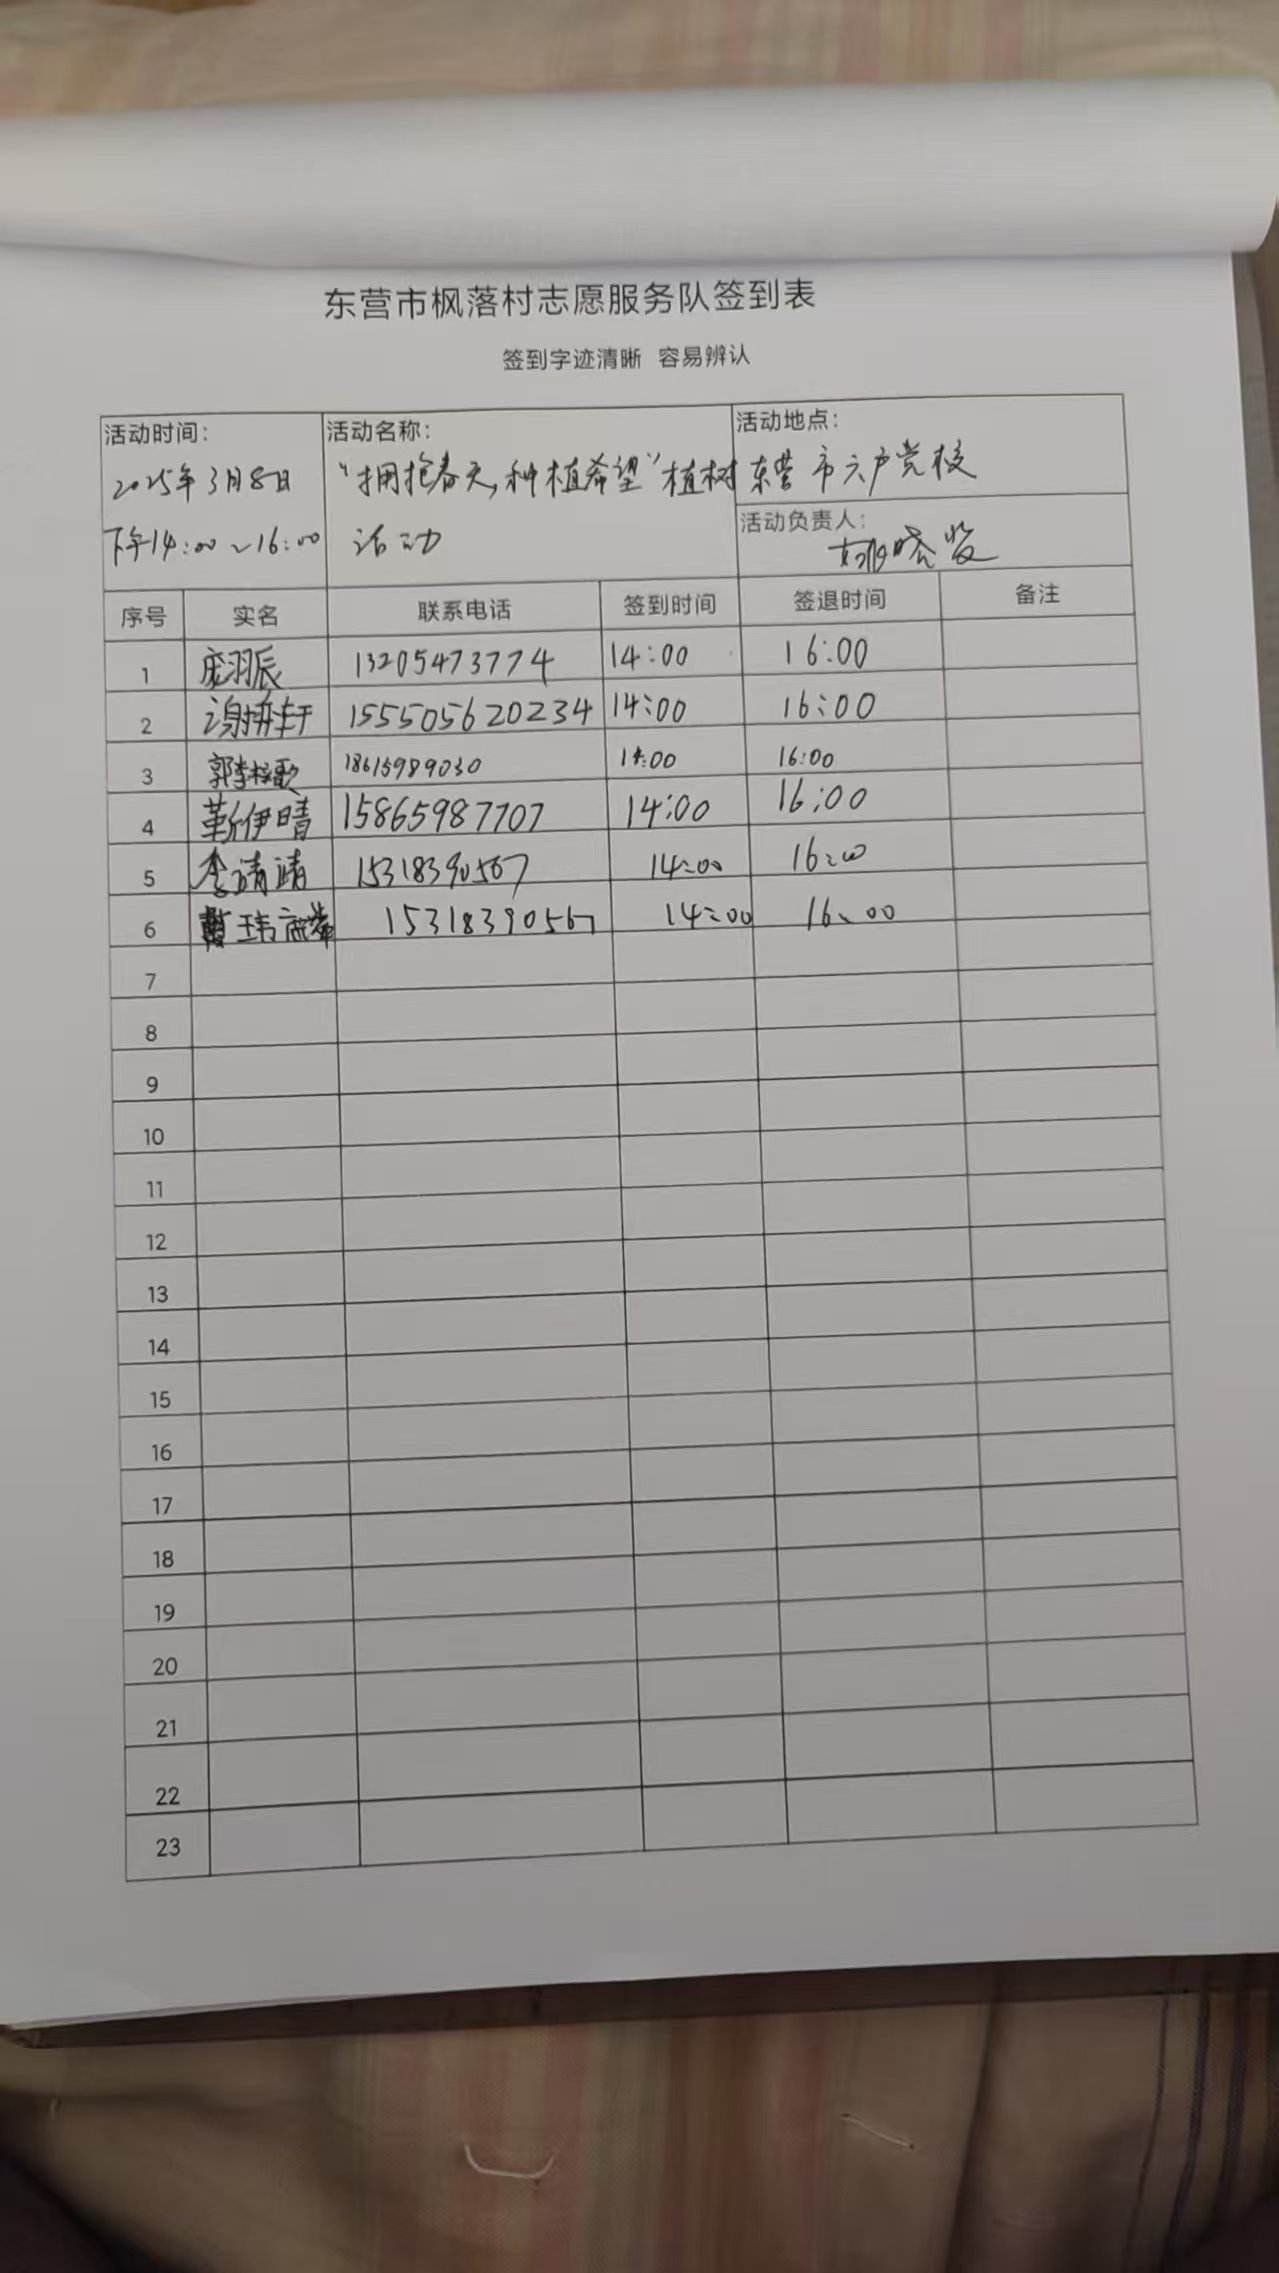 东营市枫落村志愿服务队签到表
签到字迹清晰 容易辨认
活动时间: 活动名称: 活动地点:
2025年3月8日 "拥抱春天,种植希望"植树 东营市六户党校
下午14:00~16:00 活动
活动负责人:
序号 实名 联系电话 签到时间 签退时间 备注
1 庞羽辰 13205473774 14:00 16:00
2 155505620234 14:00 16:00
3 18615989030 14:00 16:00
4 靳伊晴 15865987707 14:00 16:00
5 李靖靖 15318390567 14:00 16:00
6 15318390567 14:00 16:00
7
8
9
10
11
12
13
14
15
16
17
18
19
20
21
22
23